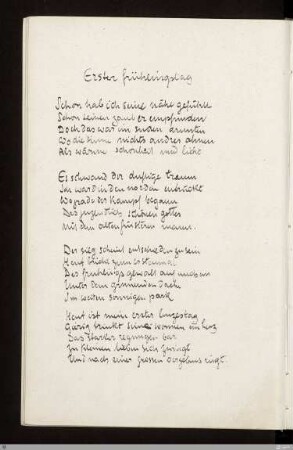 Erster frühlingstag
Schon hab ich seine nähe gefühlt
Schon seinen zauber empfunden
Doch das war im süden drunten
Wo die sinne nichts andres ahnen
Als wärme schönheit und licht
Es schwand der duftige traum
Ich ward in den norden entrückt
Wo grade der kampf begann
Des jugendlich schönen gottes
Mit dem alten finstren mann.
Der sieg scheint entschieden zu sein
Heut bricht zum erstenmal
Des frühlings gewalt aus
Unter dem grünenden dach
Im weiten sonnigen park
Heut ist meine erster lenzestag
Gierig trinkt seine wonnen ein herz
Das starker regungen bar
In kleinen lieben sich
Und nach einer grossen vergebens ringt.